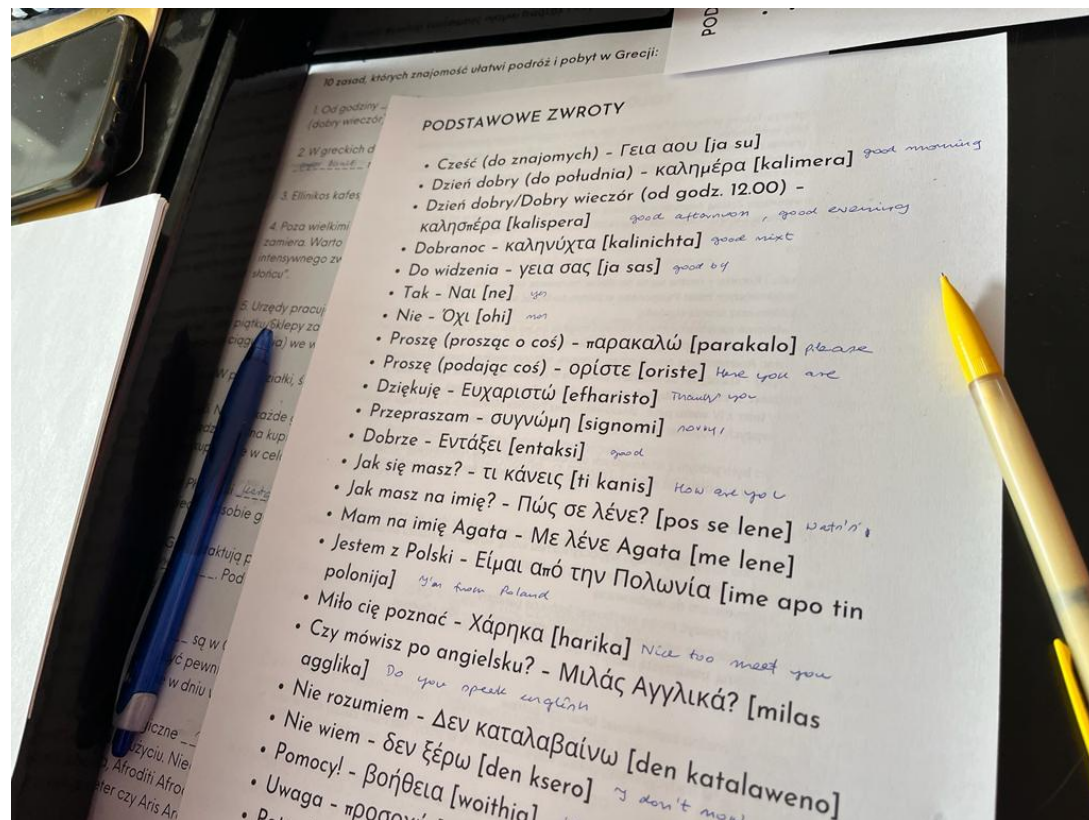 POD
10 zasad, których znajomość ułatwi podróż i pobyt w Grecji:
1. Od godziny
(dobry wieczór)
2. W greckich d
3. Ellinikos kafes
4. Poza wielkimi
zamiera. Warto
intensywnego zw
słońcu".
5. Urzędy pracuj
piątku/Sklepy za
we w
PODSTAWOWE ZWROTY
• Cześć (do znajomych) - Γεια αου [ja su]
• Dzień dobry (do południa) - καλημέρα [kalimera] good morning
• Dzień dobry/Dobry wieczór (od godz. 12.00) -
καλησπέρα [kalispera] good afternoon, good evening
• Dobranoc - καληνύχτα [kalinichta] good nixt
• Do widzenia - γεια σας [ja sas] good by
• Tak - Ναι [ne] yes
• Nie - Όχι [ohi]
• Proszę (prosząc o coś) - παρακαλώ [parakalo] please
• Proszę (podając coś) - ορίστε [oriste] Here you are
• Dziękuję - Ευχαριστώ [efharisto] Thank you
• Przepraszam - συγνώμη [signomi]
• Dobrze - Εντάξει [entaksi] good
• Jak się masz? - τι κάνεις [ti kanis] How are you
• Jak masz na imię? - Πώς σε λένε? [pos se lene]
• Mam na imię Agata - Με λένε Agata [me lene]
• Jestem z Polski - Είμαι από την Πολωνία [ime apo tin
polonija] I'm from Poland
• Miło cię poznać - Χάρηκα [harika] Nice too meet you
• Czy mówisz po angielsku? - Μιλάς Αγγλικά? [milas
agglika] Do you speak english
• Nie rozumiem - Δεν καταλαβαίνω [den katalaweno]
• Nie wiem - δεν ξέρω [den ksero] I don't
• Pomocy! - βοήθεια [woithia]
• Uwaga -